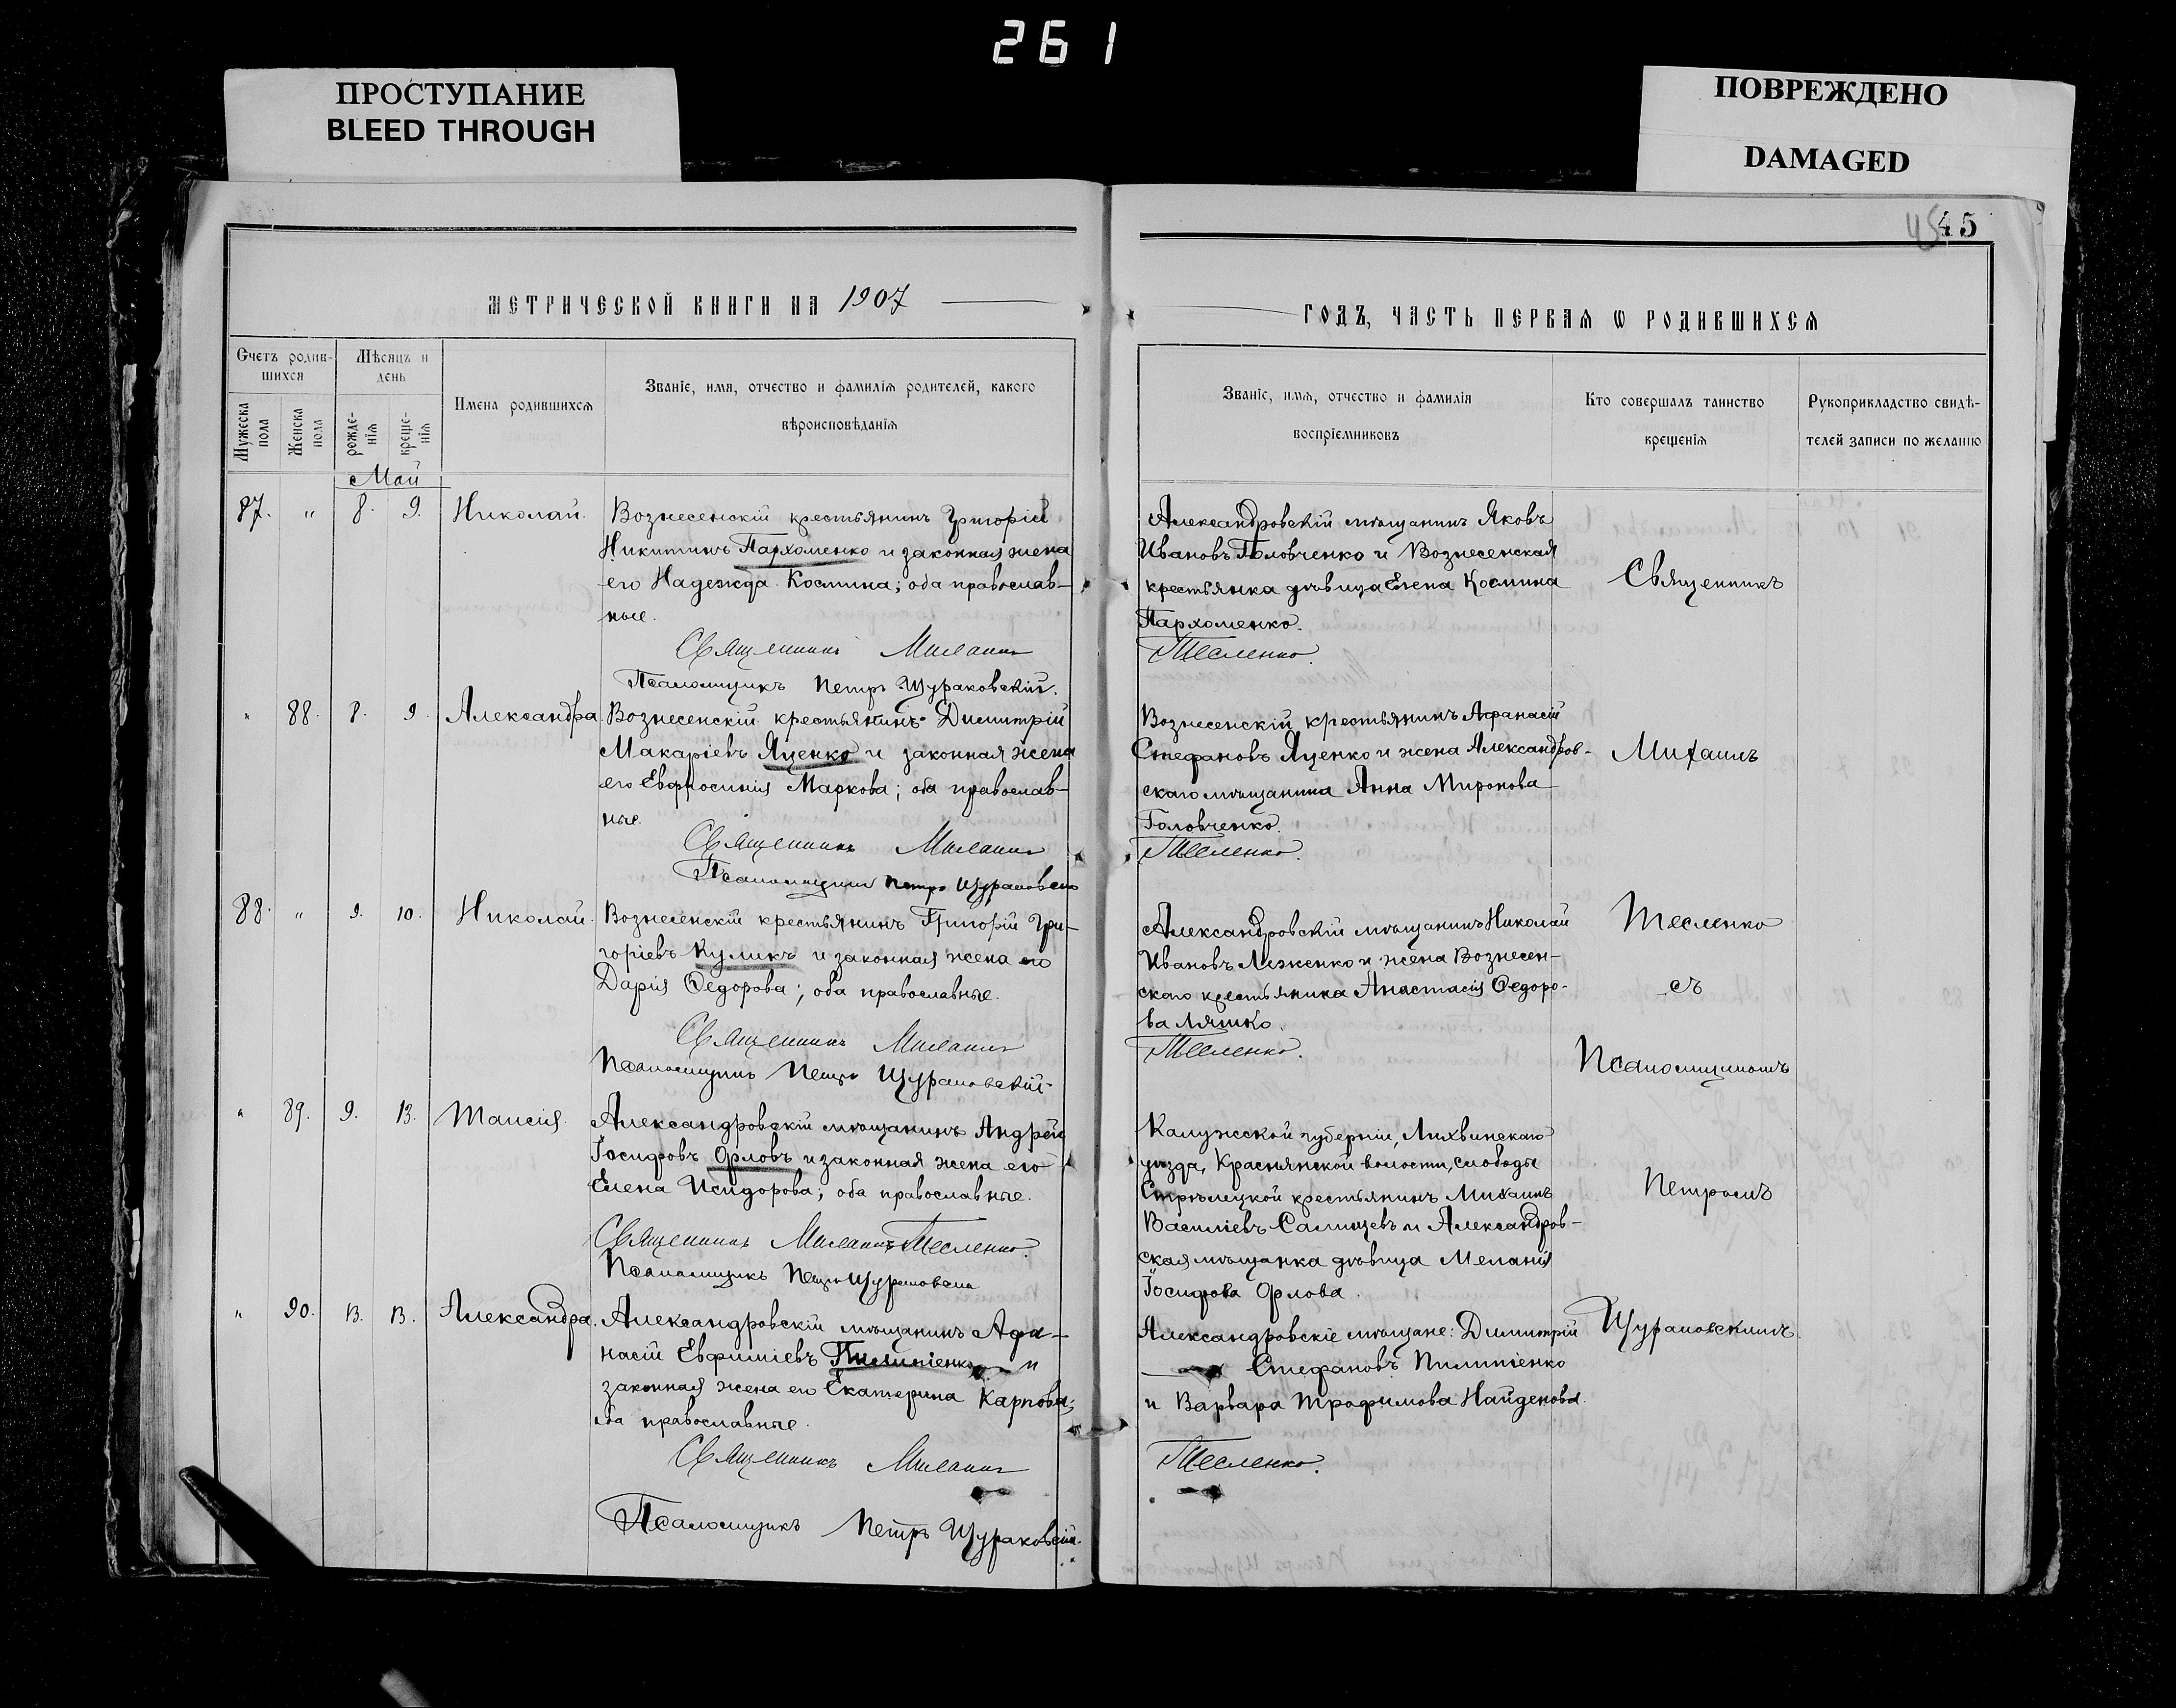 261
ПРОСТУПАНИЕ
BLEED THROUGH
ПОВРЕЖДЕНО
DAMAGED
45 45
МЕТРИЧЕСКОЙ КНИГИ НА 1907
Счетъ родив-
шихся
Мѣсяцъ и
день
Мужеска
пола
Женска
пола
рожде-
нія
креще-
нія
Имена родившихся
Званіе, имя, отчество и фамилія родителей, какого
вѣроисповѣданія
Май
87. " 8. 9. Николай.
Вознесенскій крестьянинъ Григорій
Никитинъ Пархоменко и законная жена
его Надежда Космина; оба православ-
ные.
Священникъ Михаилъ
Псаломщикъ Петръ Щураковскій.
" 88. 8. 9. Александра.
Вознесенскій крестьянинъ Димитрій
Макаріевъ Яценко и законная жена
его Евфросинія Маркова; оба православ-
ные.
Священникъ Михаилъ
Псаломщикъ Петръ Щураковскій
88. " 9. 10. Николай.
Вознесенскій крестьянинъ Григорій Гри-
горіевъ Куликъ и законная жена его
Дарія Ѳедорова; оба православные.
Священникъ Михаилъ
Псаломщикъ Петръ Щураковскій.
" 89. 9. 13. Таисія.
Александровскій мѣщанинъ Андрей
Іосифовъ Орловъ и законная жена его
Елена Исидорова; оба православные.
Священникъ Михаилъ Тесленко.
Псаломщикъ Петръ Щураковскій
" 90. 13. 13. Александра.
Александровскій мѣщанинъ Афа-
насій Евфиміевъ Пилипіенко и
законная жена его Екатерина Карпова;
оба православные.
Священникъ Михаилъ
Псаломщикъ Петръ Щураковскій.
ГОДЪ, ЧАСТЬ ПЕРВАЯ Ѡ РОДИВШИХСЯ
Званіе, имя, отчество и фамилія
воспріемниковъ
Кто совершалъ таинство
крещенія
Рукоприкладство свидѣ-
телей записи по желанію
Александровскій мѣщанинъ Яковъ
Ивановъ Головченко и Вознесенская
крестьянка дѣвица Елена Космина
Пархоменко.
Тесленко.
Вознесенскій крестьянинъ Афанасій
Стефановъ Яценко и жена Александров-
скаго мѣщанина Анна Миронова
Головченко.
Тесленко.
Александровскій мѣщанинъ Николай
Ивановъ Ляженко и жена Вознесен-
скаго крестьянина Анастасія Ѳедоро-
ва Ляшко.
Тесленко.
Калужской губерніи, Лихвинскаго
уѣзда, Краснянской волости, слободы
Стрѣлецкой крестьянинъ Михаилъ
Василіевъ Салищевъ и Александров-
ская мѣщанка дѣвица Меланія
Іосифова Орлова.
Александровскіе мѣщане: Димитрій
Стефановъ Пилипіенко
и Варвара Трофимова Найденова.
Тесленко.
Священникъ
Михаилъ
Тесленко
съ
Псаломщикомъ
Петромъ
Щураковскимъ.